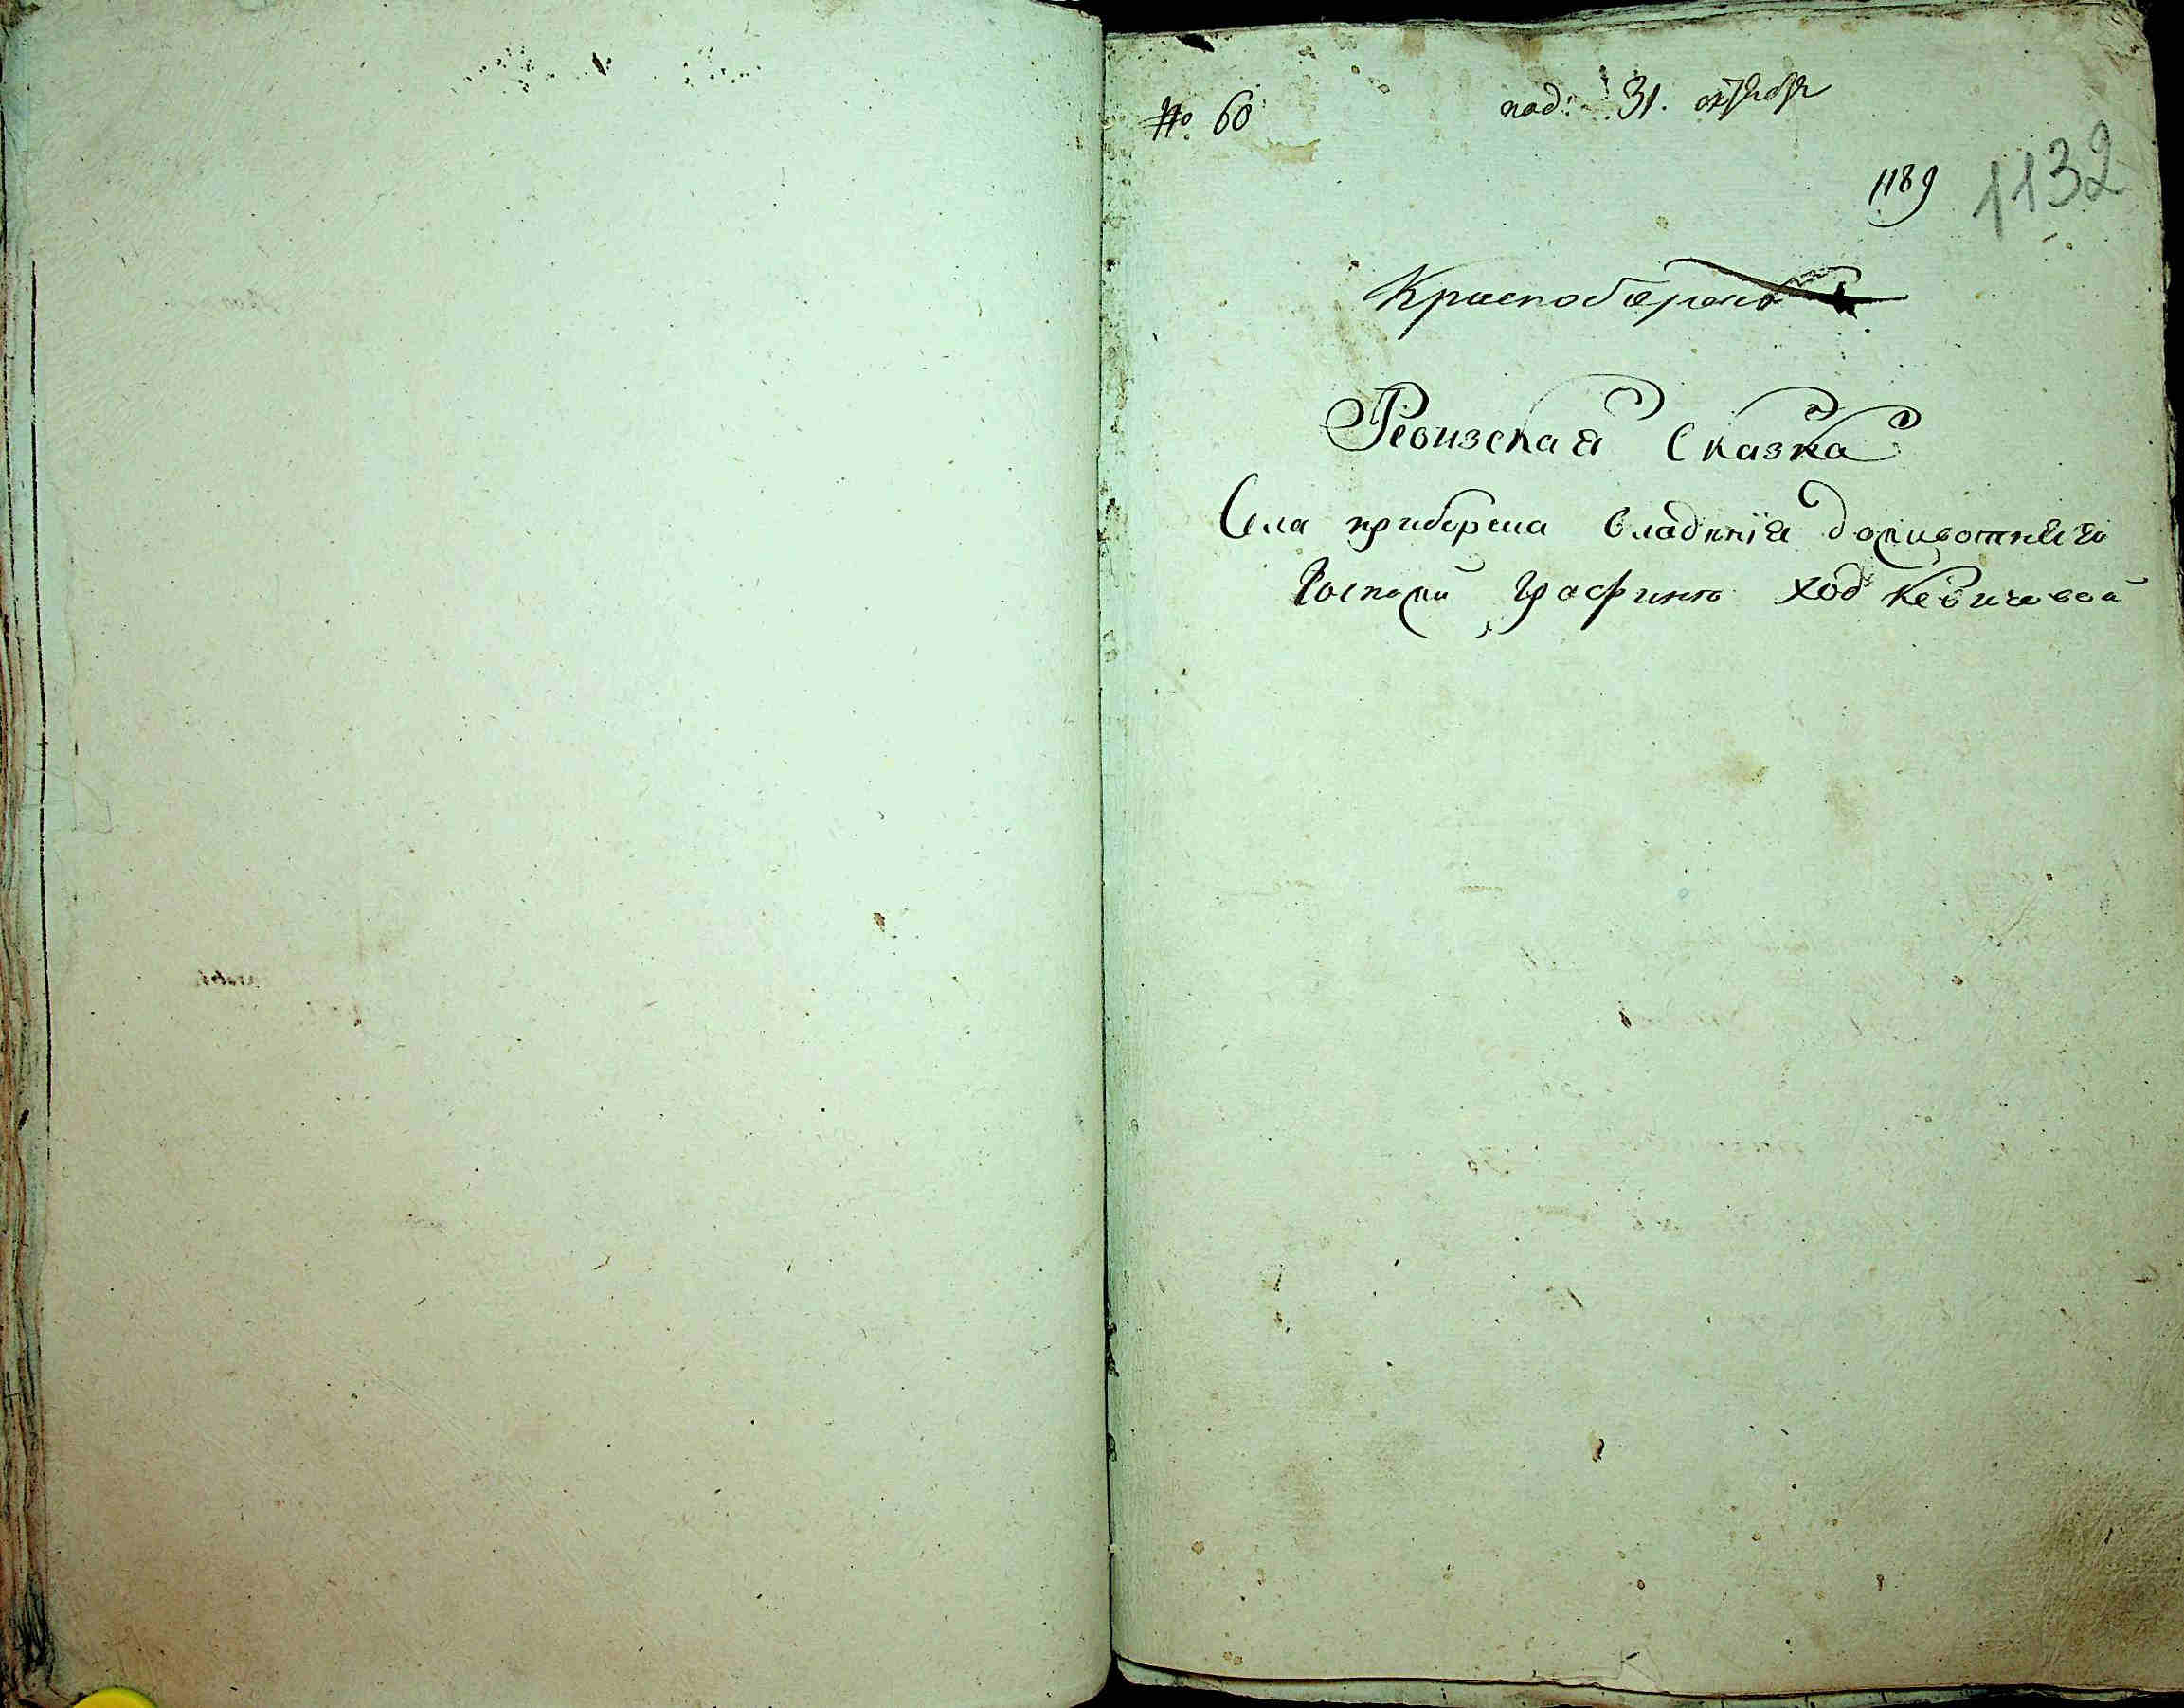 № 60
под: 31. октября
1189
1132
Ревизская Сказка
Села приборска владения доживотнаго
Госпожи Графинѣ Ходкевичевой